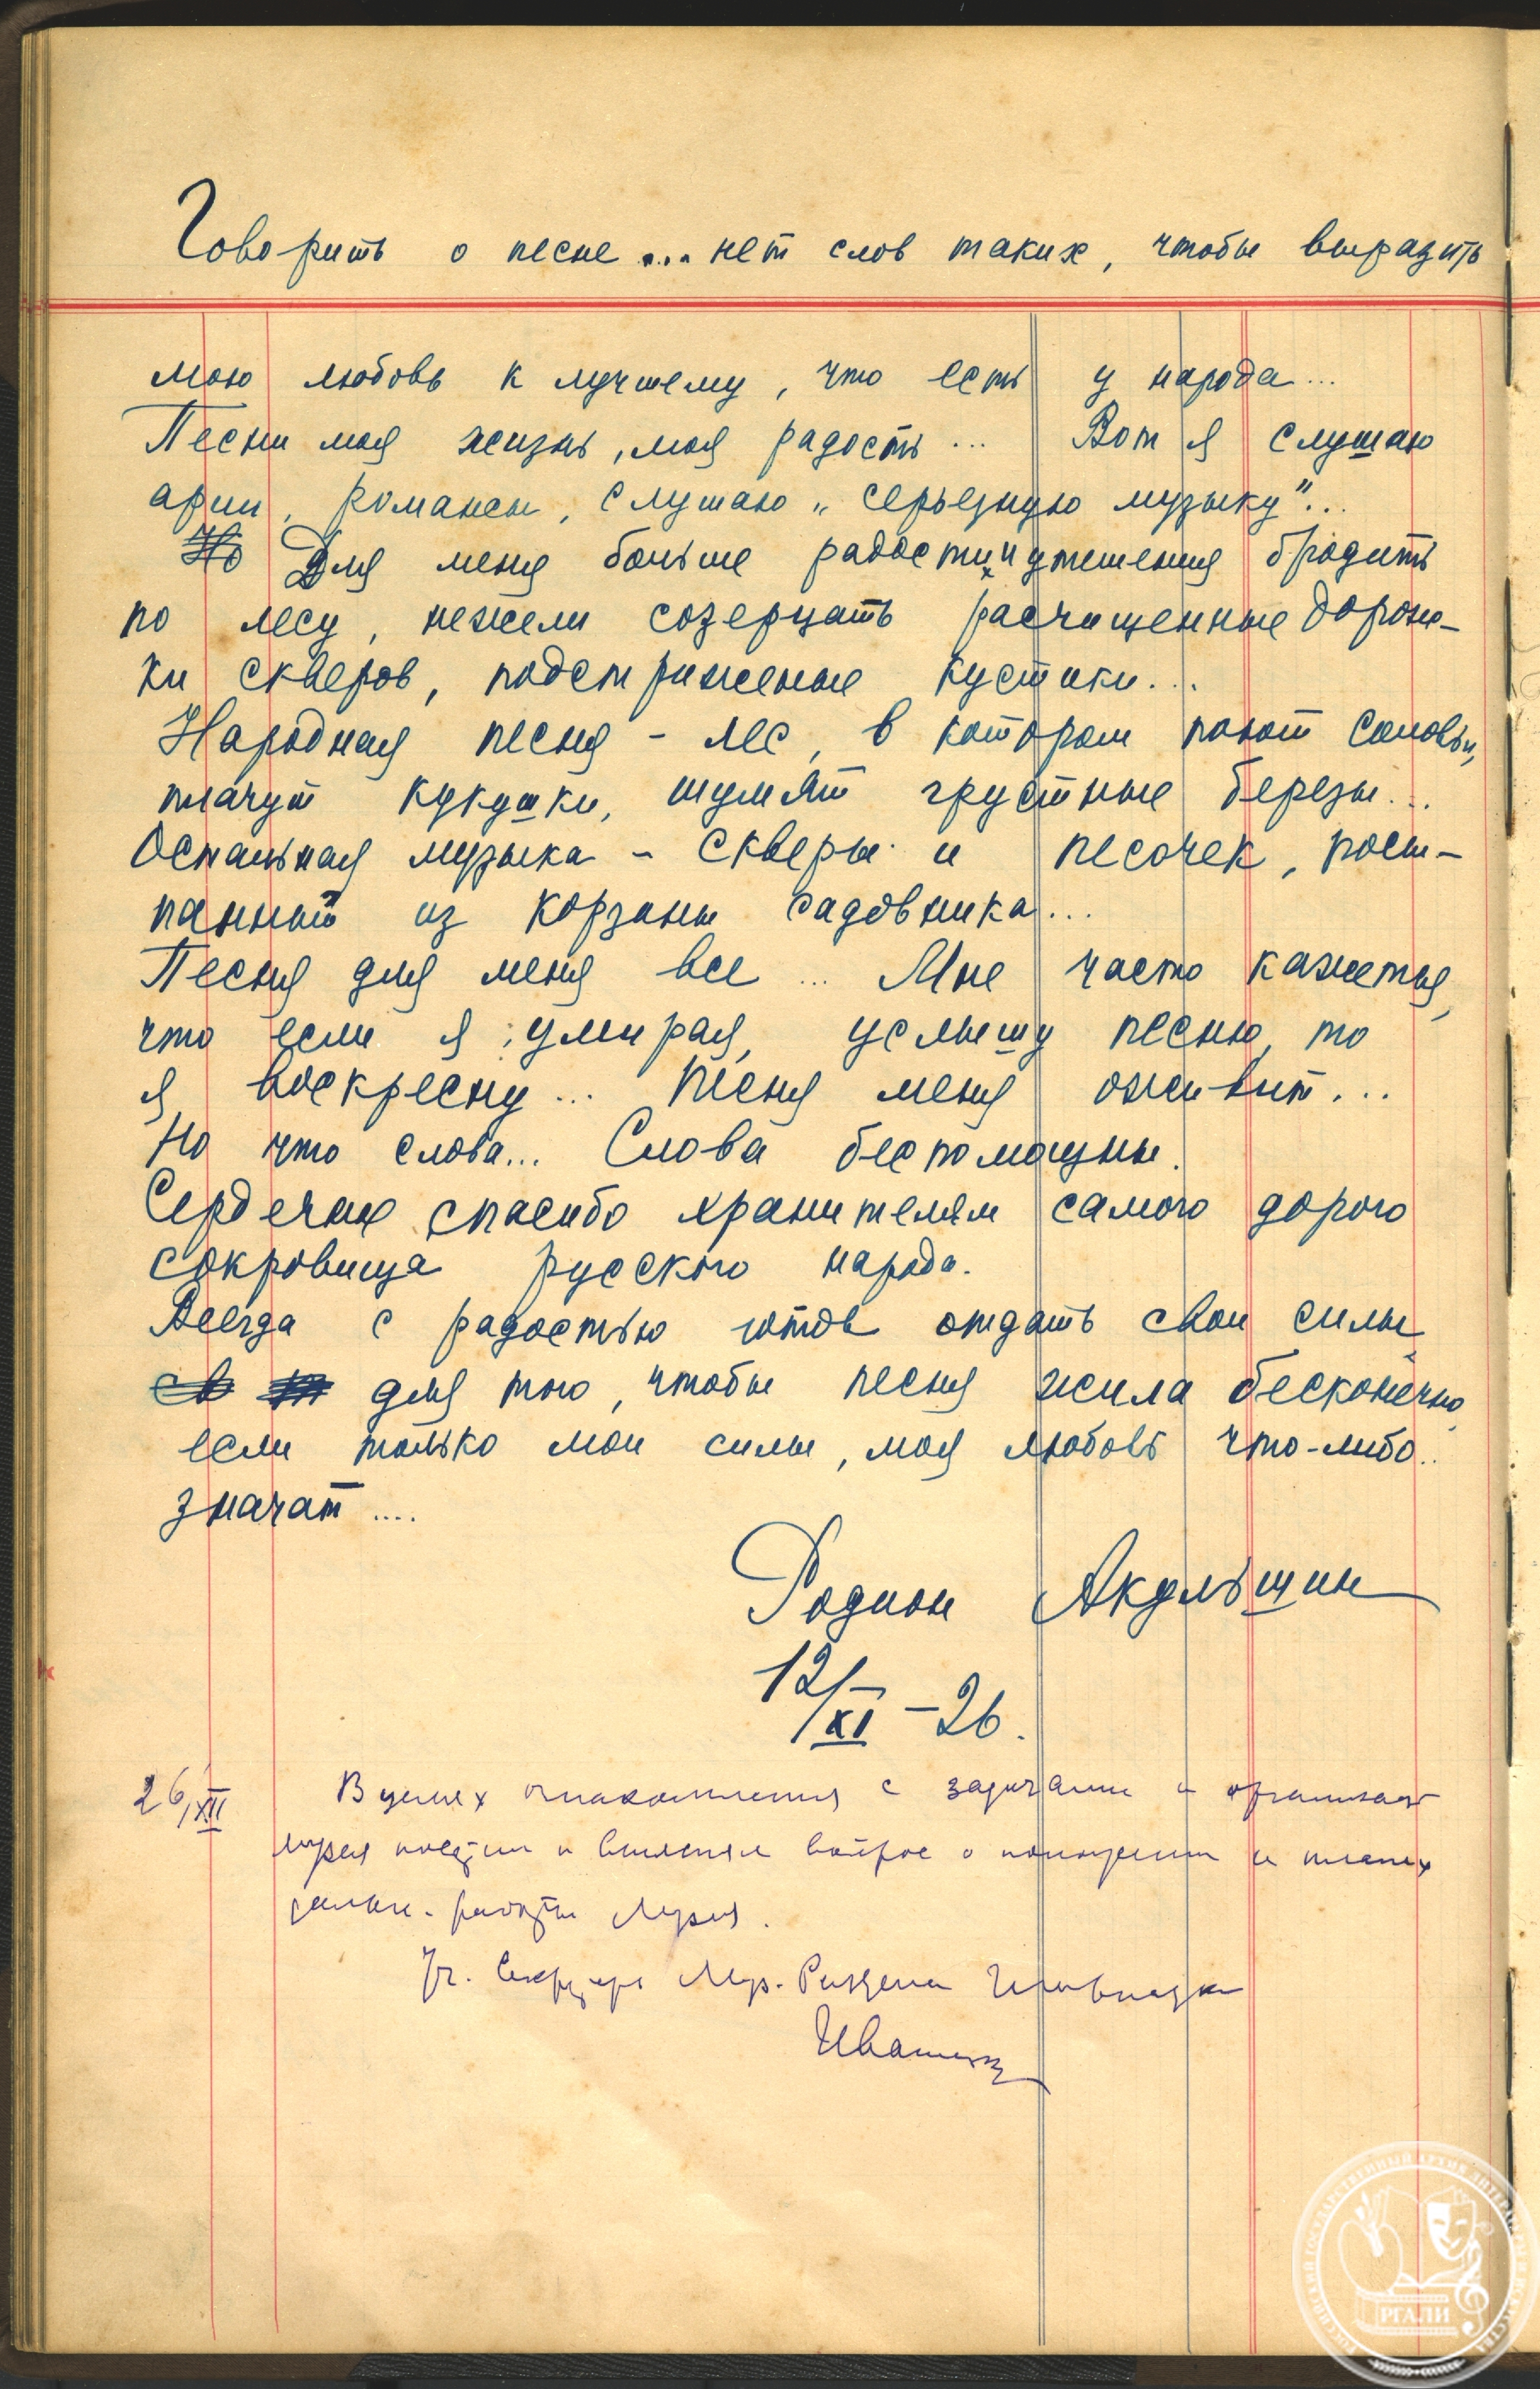 Говорить о песне.... нет слов таких, чтобы выразить
мою любовь к лучшему, что есть у народа...
Песни моя жизнь, моя радость... Вот я слушаю
арии, романсы, слушаю „серьезную музыку"...
Но Для меня больше радости и утешения бродить
по лесу, нежели созерцать расчищенные дорож-
ки скверов, подстриженные кустики...
Народная песня - лес, в котором поют соловьи,
плачут кукушки, шумят грустные березы...
Остальная музыка - скверы и песочек, посы-
панный из корзины садовника...
Песня для меня все... Мне часто кажется,
что если я, умирая, услышу песню, то
я воскресну... Песня меня оживит...
Но что слова... Слова беспомощны.
Сердечное спасибо хранителям самого дорого
сокровища русского народа.
Всегда с радостью готов отдать свои силы
для того, чтобы песня жила бесконечно,
если только мои силы, моя любовь что-либо..
значат....
Родион Акульшин
12/XI - 26.
26/XII В целях ознакомления с задачами и
Музея посетил и выяснял вопрос о положении и планах
работы Музея.
Уч. Секретарь Муз.
РОССИЙСКИЙ ГОСУДАРСТВЕННЫЙ АРХИВ ЛИТЕРАТУРЫ И ИСКУССТВА
РГАЛИ